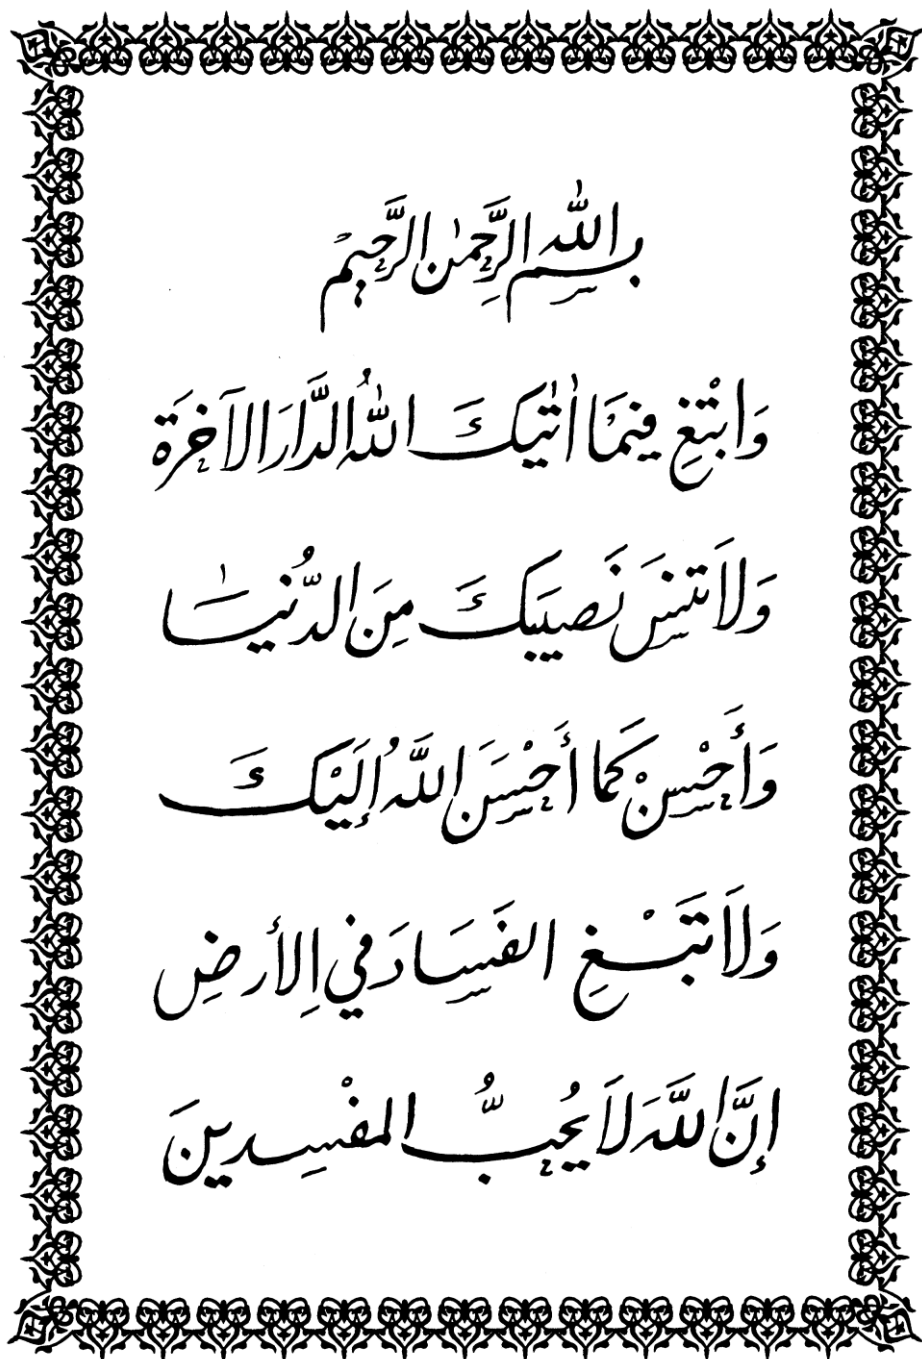 بِسْمِ اللّٰهِ الرَّحِمٰنِ الرَّحِيْمِ
وَابْتَغِ فِيْمَا اٰتٰيكَ اللّٰهُ الدَّارَ الآخِرَةَ
وَلاَ تَنسَ نَصِيبَكَ مِنَ الدُّنْيَا
وَأَحْسِنْ كَمَا أَحْسَنَ اللَّهُ إِلَيْكَ
وَلاَ تَبْغِ الفَسَادَ فِي الأَرضِ
إِنَّ اللَّهَ لاَ يُحِبُّ المفْسِدِينَ